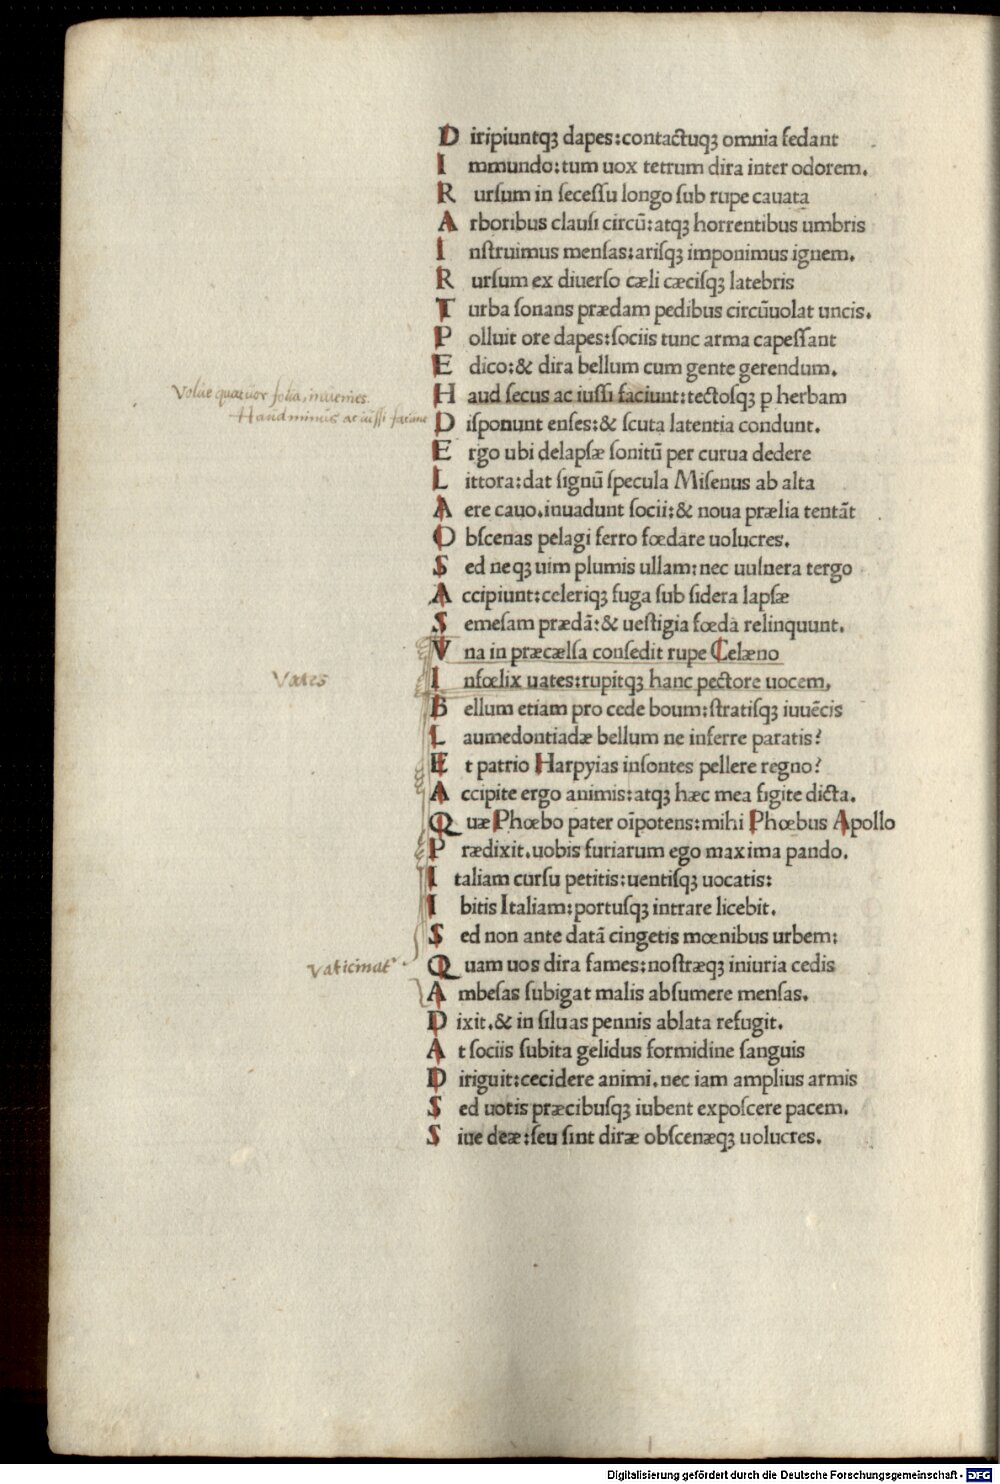 Diripiuntqꝫ dapes:contactuqꝫ omnia fedant
Immundo:tum uox tetrum dira inter odorem.
Rurſum in ſeceſſu longo ſub rupe cauata
Arboribus clauſi circū:atqꝫ horrentibus umbris
Inſtruimus menſas:ariſqꝫ imponimus ignem.
Rurſum ex diuerſo cæli cæciſqꝫ latebris
Turba ſonans prædam pedibus circūuolat uncis.
Polluit ore dapes:ſociis tunc arma capeſſant
Edico:& dira bellum cum gente gerendum.
Haud ſecus ac iuſſi faciunt:tectoſqꝫ ꝑ herbam
Volue quatuor folia, inuenies.
Haud minus ac iuſſi faciunt
Diſponunt enſes:& ſcuta latentia condunt.
Ergo ubi delapſæ ſonitū per curua dedere
Littora:dat ſignū ſpecula Miſenus ab alta
Aere cauo.inuadunt ſocii:& noua prælia tentāt
Obſcenas pelagi ferro fœdare uolucres.
Sed neqꝫ uim plumis ullam:nec uulnera tergo
Accipiunt:celeriqꝫ fuga ſub ſidera lapſæ
Semeſam prædā:& ueſtigia fœda relinquunt.
Vna in præcælſa conſedit rupe Celæno
Vates
Infœlix uates:rupitqꝫ hanc pectore uocem,
Bellum etiam pro cede boum:ſtratiſqꝫ iuuēcis
Laumedontiadæ bellum ne inferre paratis?
Et patrio Harpyias inſontes pellere regno?
Accipite ergo animis:atqꝫ hæc mea figite dicta.
Quæ Phœbo pater oīpotens:mihi Phœbus Apollo
Prædixit.uobis furiarum ego maxima pando.
Italiam curſu petitis:uentiſqꝫ uocatis:
Ibitis Italiam:portuſqꝫ intrare licebit.
Sed non ante datā cingetis mœnibus urbem:
Vaticinat
Quam uos dira fames:noſtræqꝫ iniuria cedis
Ambeſas ſubigat malis abſumere menſas.
Dixit.& in ſiluas pennis ablata refugit.
At ſociis ſubita gelidus formidine ſanguis
Diriguit:cecidere animi.nec iam amplius armis
Sed uotis præcibuſqꝫ iubent expoſcere pacem.
Siue deæ:ſeu ſint diræ obſcenæqꝫ uolucres.
Digitalisierung gefördert durch die Deutsche Forschungsgemeinschaft - DFG